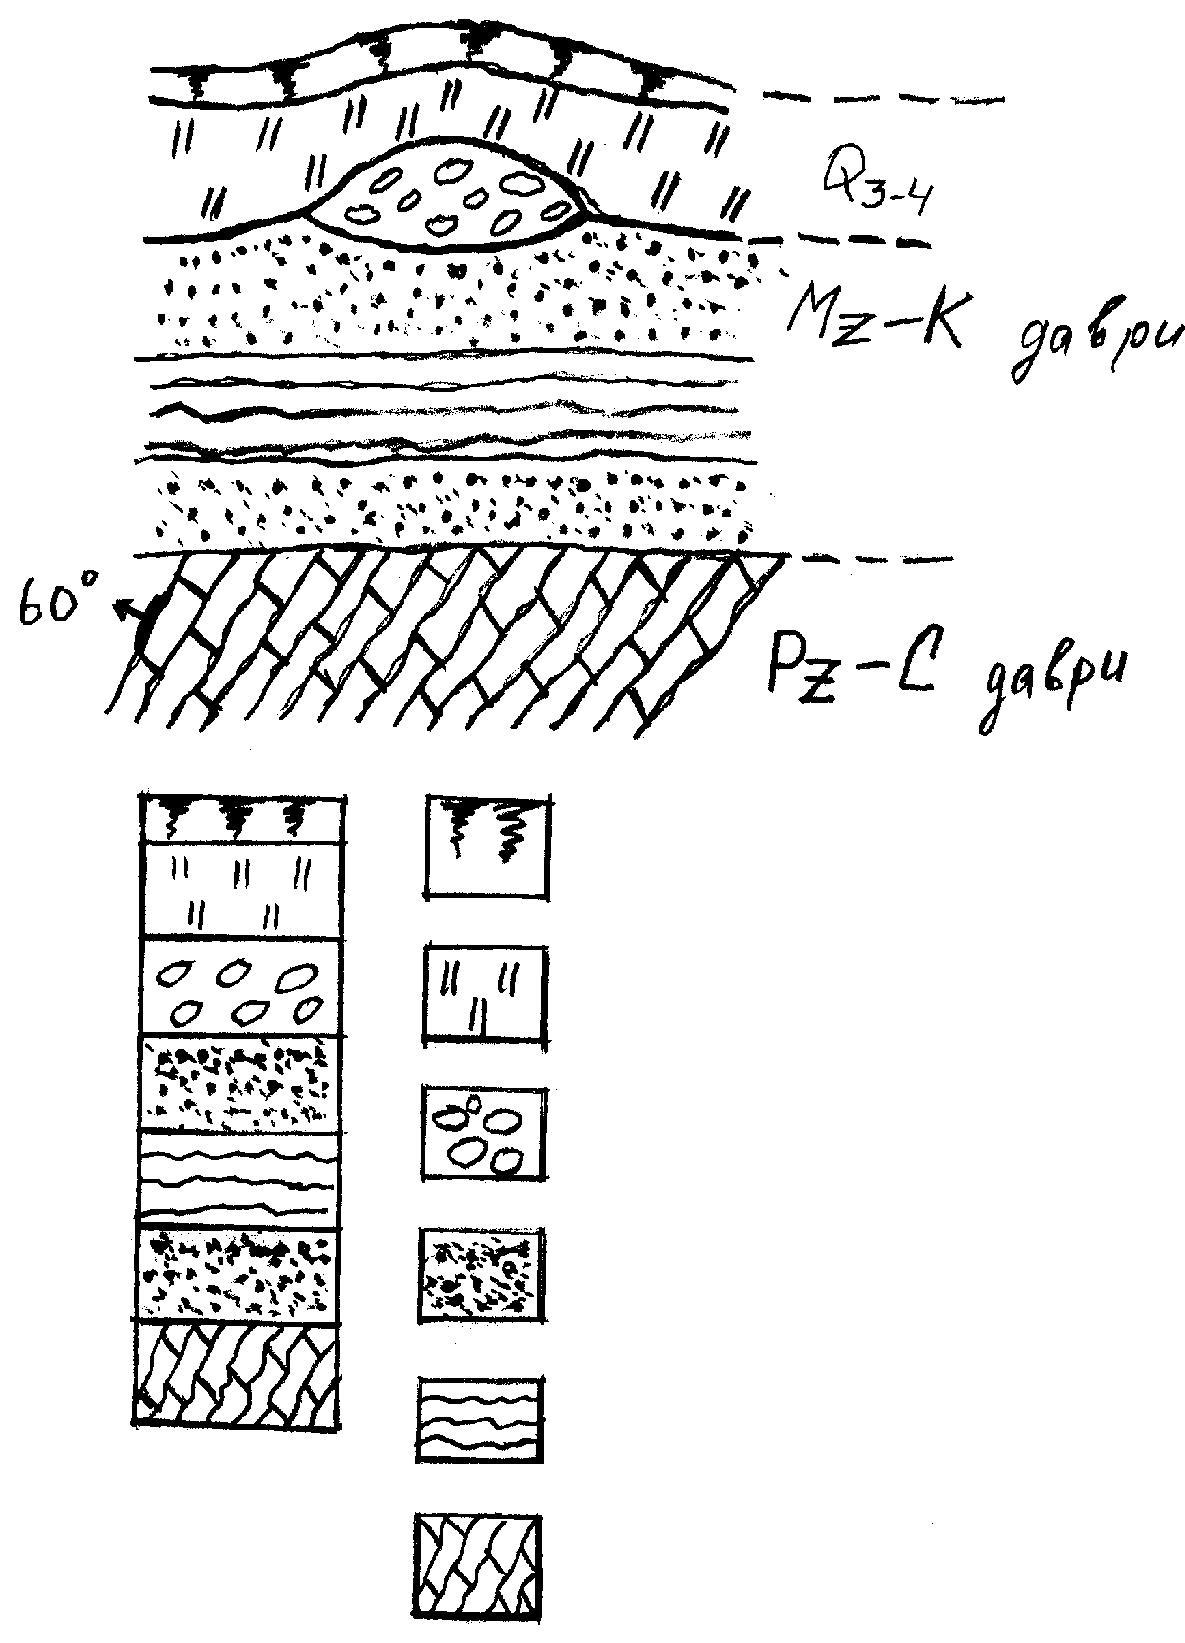 Q3-4
Mz-K даври
60°
Pz-C даври